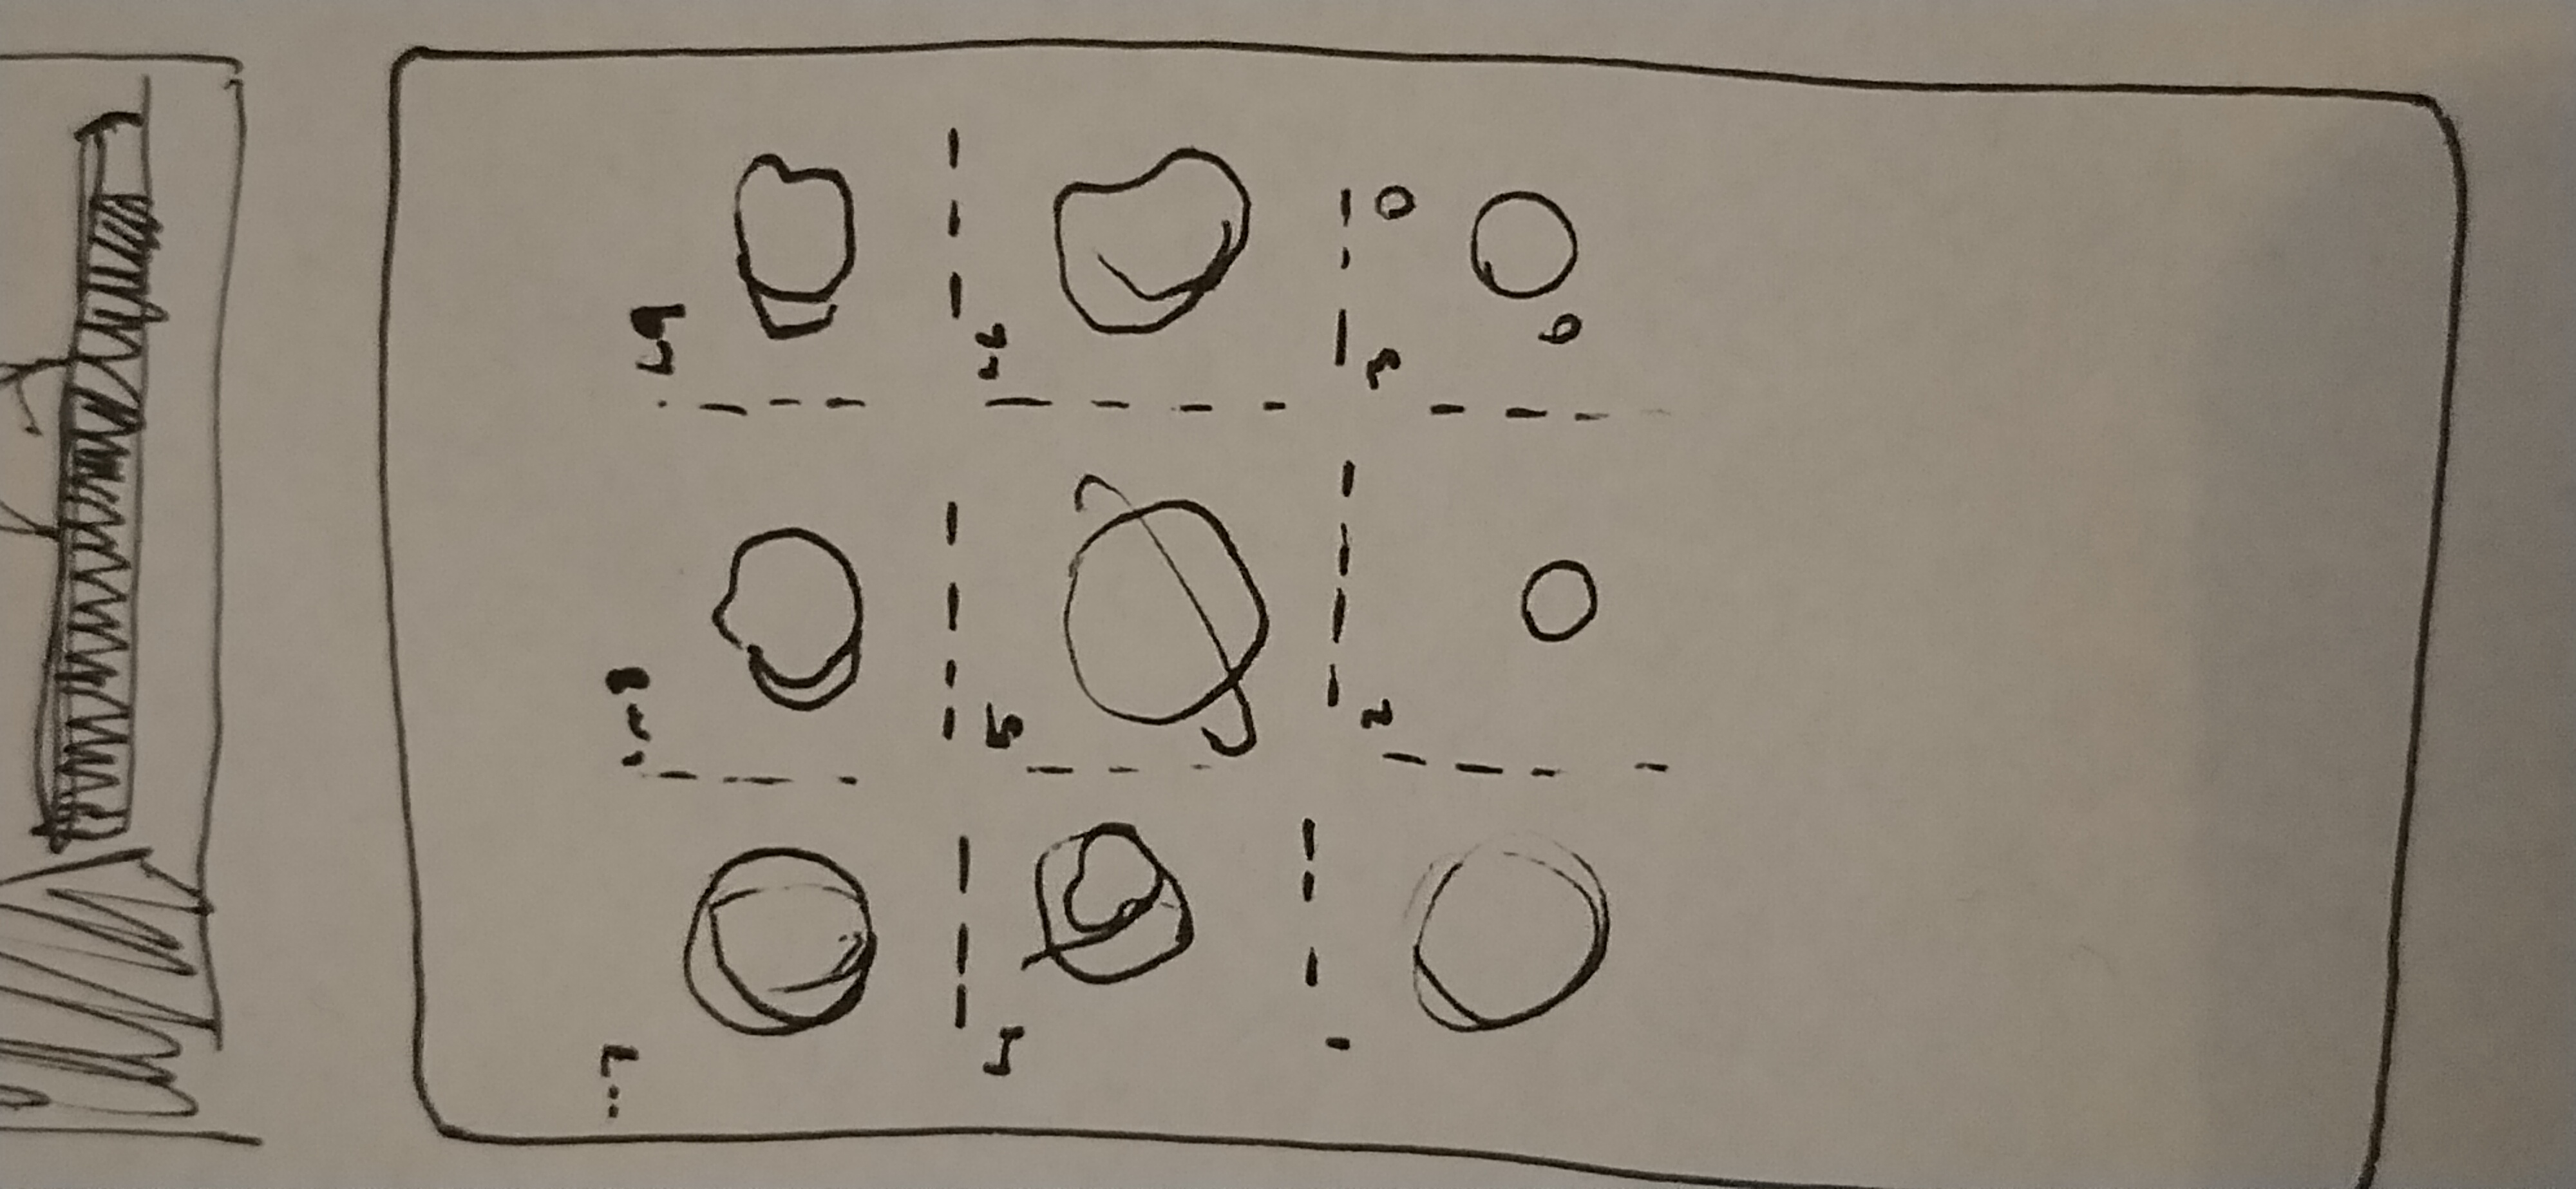 7 8 9
4 5 6
2 3